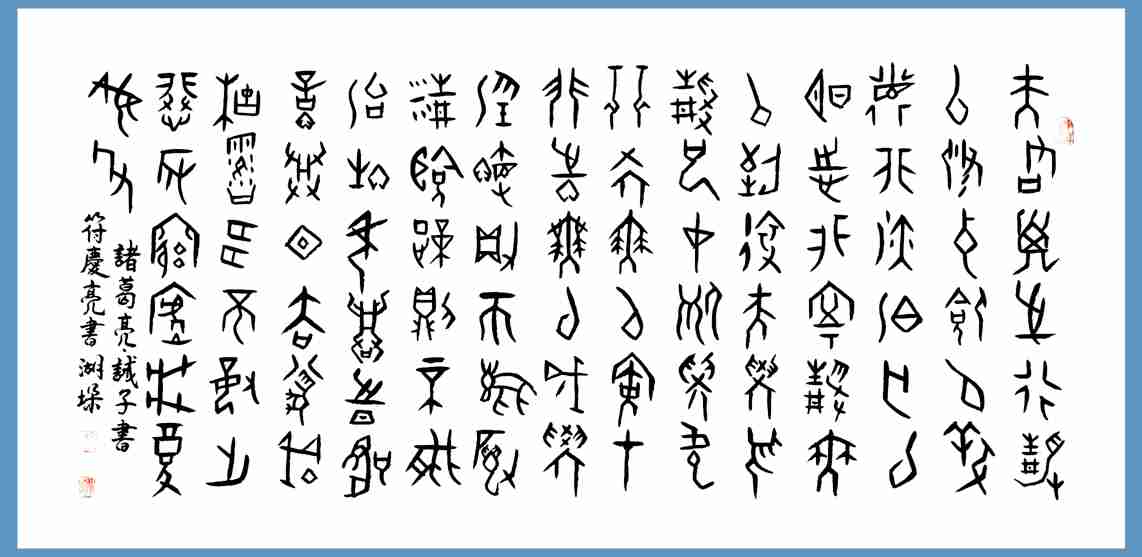 夫君子之行靜
以修身儉以養
德非澹泊無以
明志非寧靜無
以致遠夫學須
靜也才須學也
非學無以廣才
非志無以成學
淫慢則不能勵
精險躁則不能
治性年與時馳
意與日去遂成
枯落多不接世
悲守窮廬將復
何及
諸葛亮·誡子書
符慶亮書湖垛